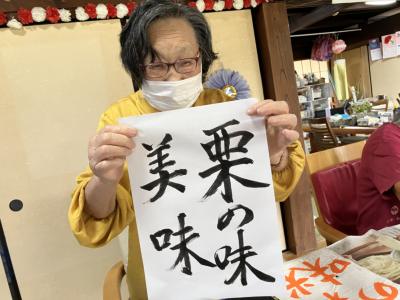 栗の味
美味